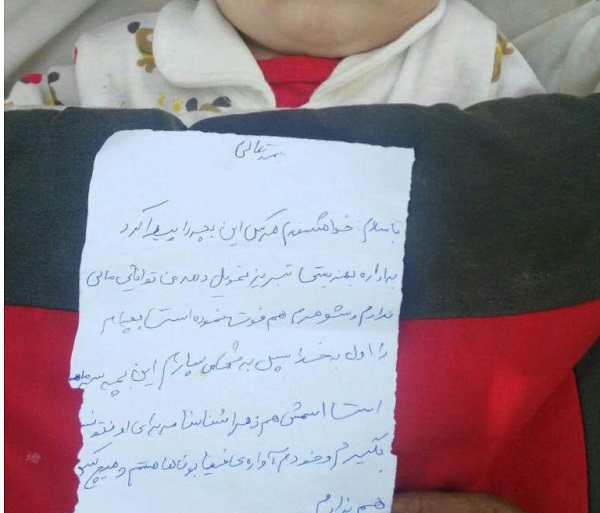 بسمه تعالی
با سلام. خواهشمندم هرکس این بچه را پیدا کرد
به اداره بهزیستی تبریز تحویل دهد من توانایی مالی
ندارم و شوهرم هم فوت نموده است بچه‌ام
را اول به خدا سپس به شما می‌سپارم این بچه سه ماهه
است اسمش هم زهرا شناسنامه برای او نتونستم
بگیرم و خودم آواره خیابونها هستم و هیچ کسی
هم ندارم